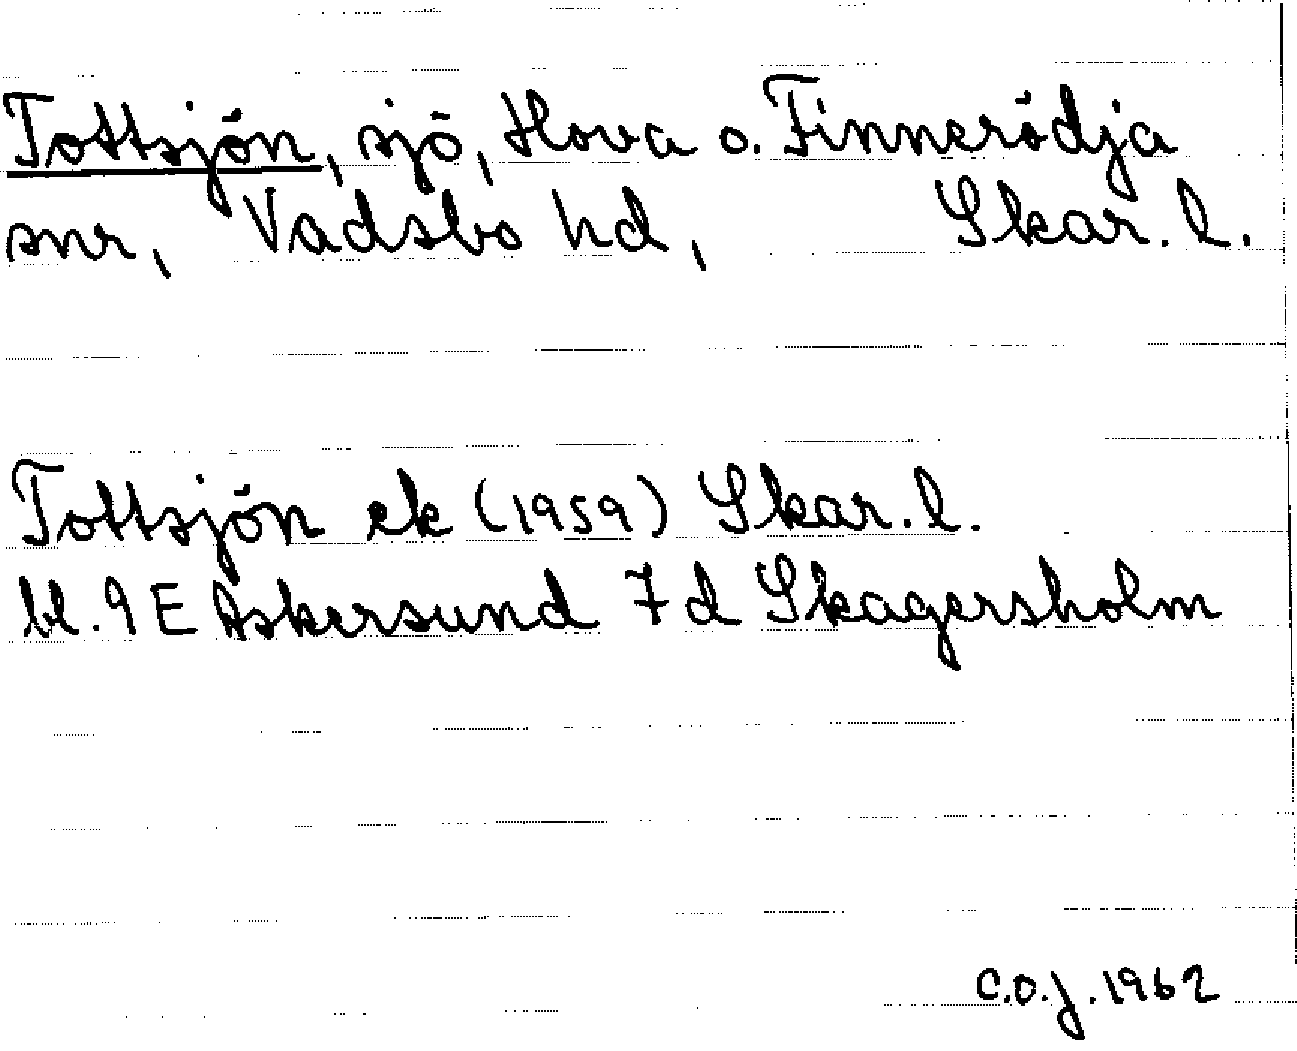 Tottsjön, sjö, Hova o. Finnerödja
snr, Vadsbo hd, Skar. l.
Tottsjön ek (1959) Skar. l.
bl. 9 E Askersund 7 d Skagersholm
C.O.J. 1962